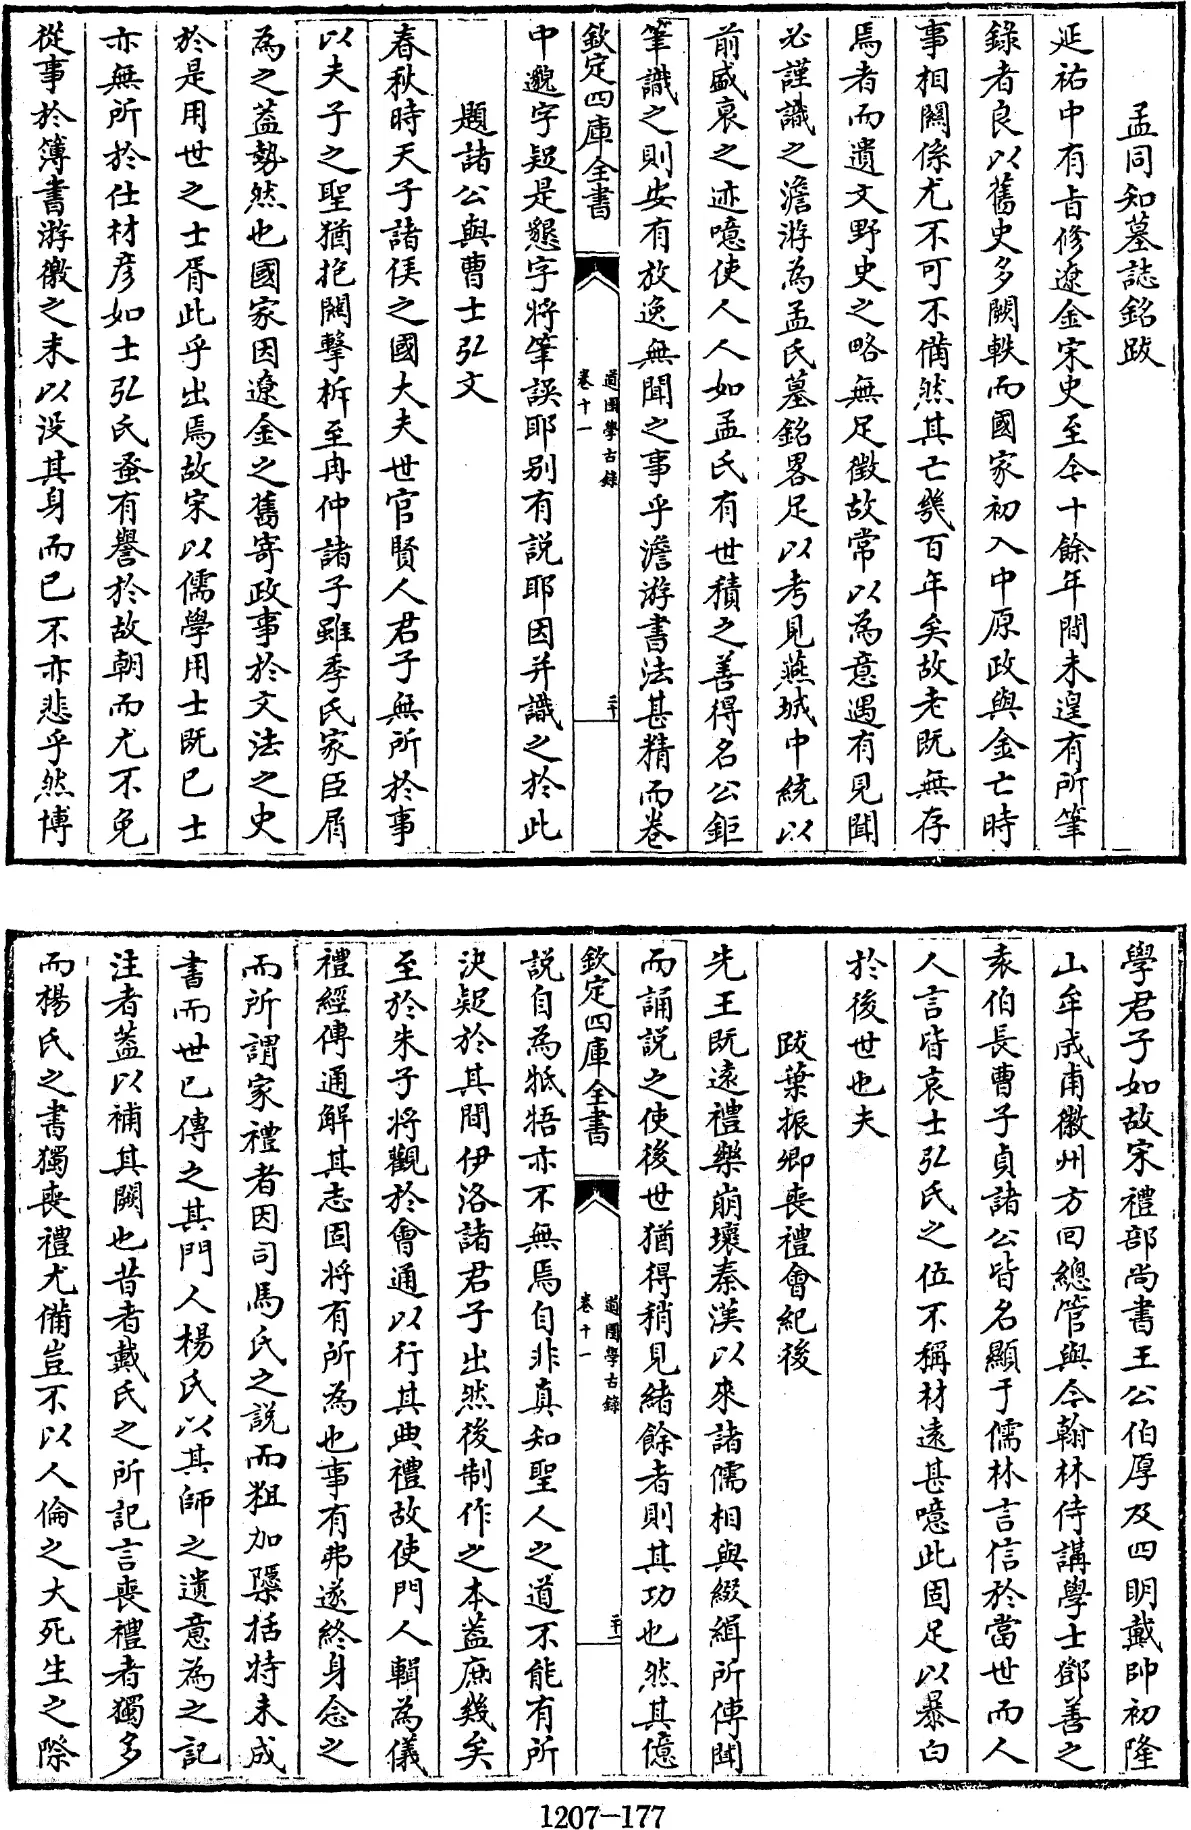 孟同知墓誌銘跋
延祐中有旨修遼金宋史至今十餘年間未遑有所筆
錄者良以舊史多闕軼而國家初入中原政與金亡時
事相闗係尤不可不備然其亡幾百年矣故老既無存
焉者而遺文野史之略無足徴故常以為意遇有見聞
必謹識之澹游為孟氏墓銘畧足以考見燕城中統以
前盛衰之迹噫使人人如孟氏有世積之善得名公鉅
筆識之則安有放逸無聞之事乎澹游書法甚精而卷
欽定四庫全書
道園學古錄
卷十一
二十
中邈字疑是懇字將筆誤耶别有説耶因并識之於此
題諸公與曹士弘文
春秋時天子諸侯之國大夫世官賢人君子無所於事
以夫子之聖猶抱闗擊柝至冉仲諸子雖季氏家臣屑
為之蓋勢然也國家因遼金之舊寄政事於文法之史
於是用世之士胥此乎出焉故宋以儒學用士既已士
亦無所於仕材彦如士弘氏蚤有譽於故朝而尤不免
從事於簿書游徼之末以没其身而已不亦悲乎然博
學君子如故宋禮部尚書王公伯厚及四明戴帥初隆
山牟成甫徽州方回總管與今翰林侍講學士鄧善之
袁伯長曹子貞諸公皆名顯于儒林言信於當世而人
人言皆哀士弘氏之位不稱材遠甚噫此固足以暴白
於後世也夫
跋葉振卿喪禮會紀後
先王既遠禮樂崩壞秦漢以來諸儒相與綴緝所傳聞
而誦説之使後世猶得稍見緒餘者則其功也然其億
欽定四庫全書
道園學古錄
卷十一
二十一
説自為牴牾亦不無焉自非真知聖人之道不能有所
決疑於其間伊洛諸君子出然後制作之本蓋庶幾矣
至於朱子將觀於會通以行其典禮故使門人輯為儀
禮經傳通解其志固將有所為也事有弗遂終身念之
而所謂家禮者因司馬氏之説而粗加檃括特未成
書而世已傳之其門人楊氏以其師之遺意為之記
注者蓋以補其闕也昔者戴氏之所記言喪禮者獨多
而楊氏之書獨喪禮尤備豈不以人倫之大死生之際
1207-177